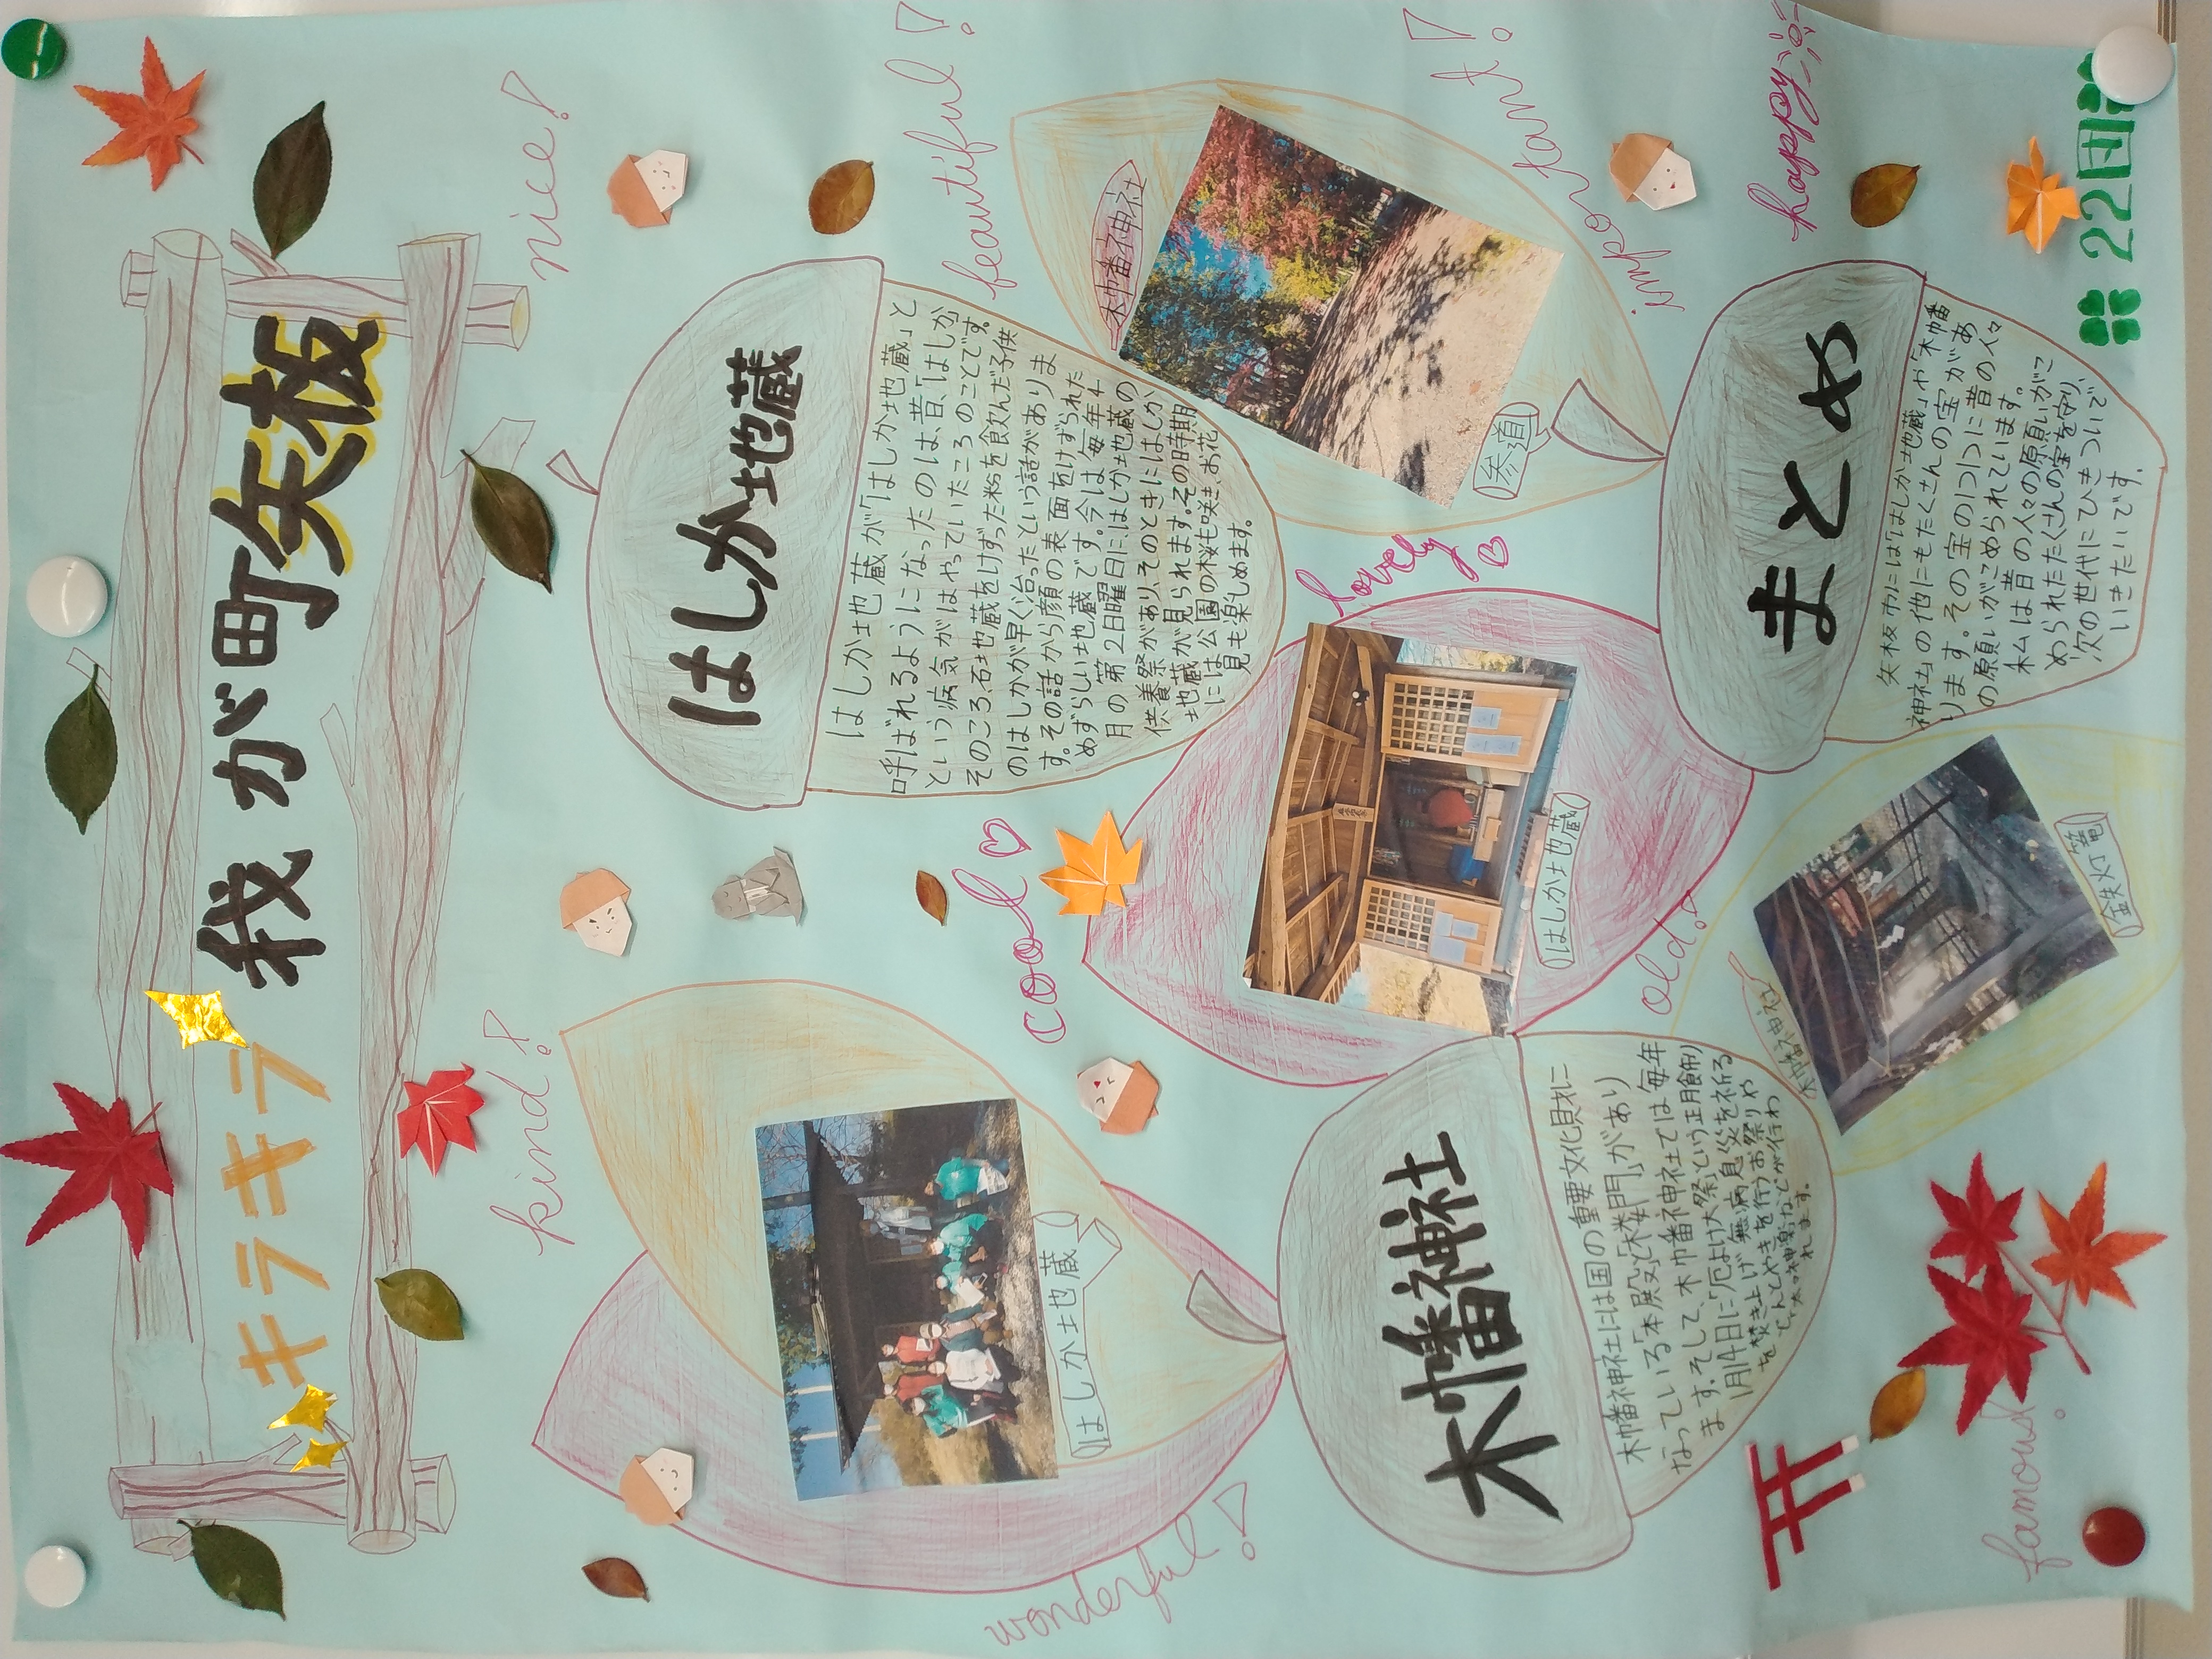 キラキラ 我が町矢板
kind!
nice!
はしか地蔵
はしか地蔵が「はしか地蔵」と
呼ばれるようになったのは、昔、「はしか」
という病気がはやっていたころのことです。
そのころ、石地蔵をけずった粉を飲んだ子供
のはしかが早く治ったという話がありま
す。その話から顔の表面をけずられた
めずらしい地蔵です。今は毎年4
月の第2日曜日に、はしか地蔵の
供養祭があり、そのときにはしか
地蔵が見られます。その時期
には公園の桜も咲き、お花
見も楽しめます。
beautiful!
はしか地蔵
wonderful!
cool
木幡神社
参道
important!
lovely
はしか地蔵
old!
木幡神社
木幡神社には国の重要文化財に
なっている「本殿」と「楼門」があり
ます。そして、木幡神社では毎年
1月14日に「厄よけ大祭」という正月飾り
を焚き上げ無病息災を祈る
どんどやきを行うお祭りや
「太々神楽」などが行わ
れます。
まとめ
矢板市には「はしか地蔵」や「木幡
神社」の他にもたくさんの宝があ
ります。その宝の1つ1つに昔の人々
の願いがこめられています。
私は昔の人々の願いがこ
められたたくさんの宝を守り、
次の世代にひきついで
いきたいです。
happy
木幡神社
鉄灯籠
famous!
22団